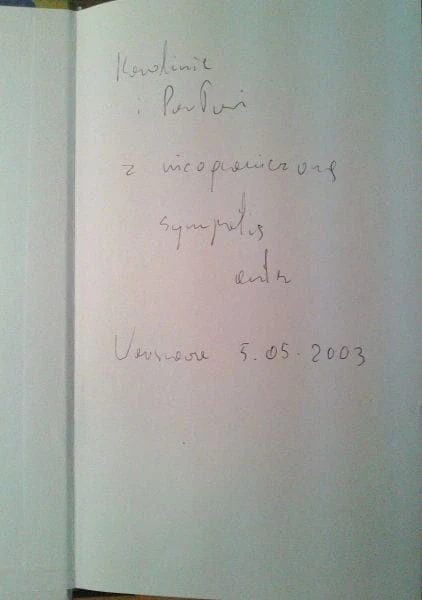 Karolinie
i
z nieograniczoną
sympatią
autor
Warszawa 5.05.2003